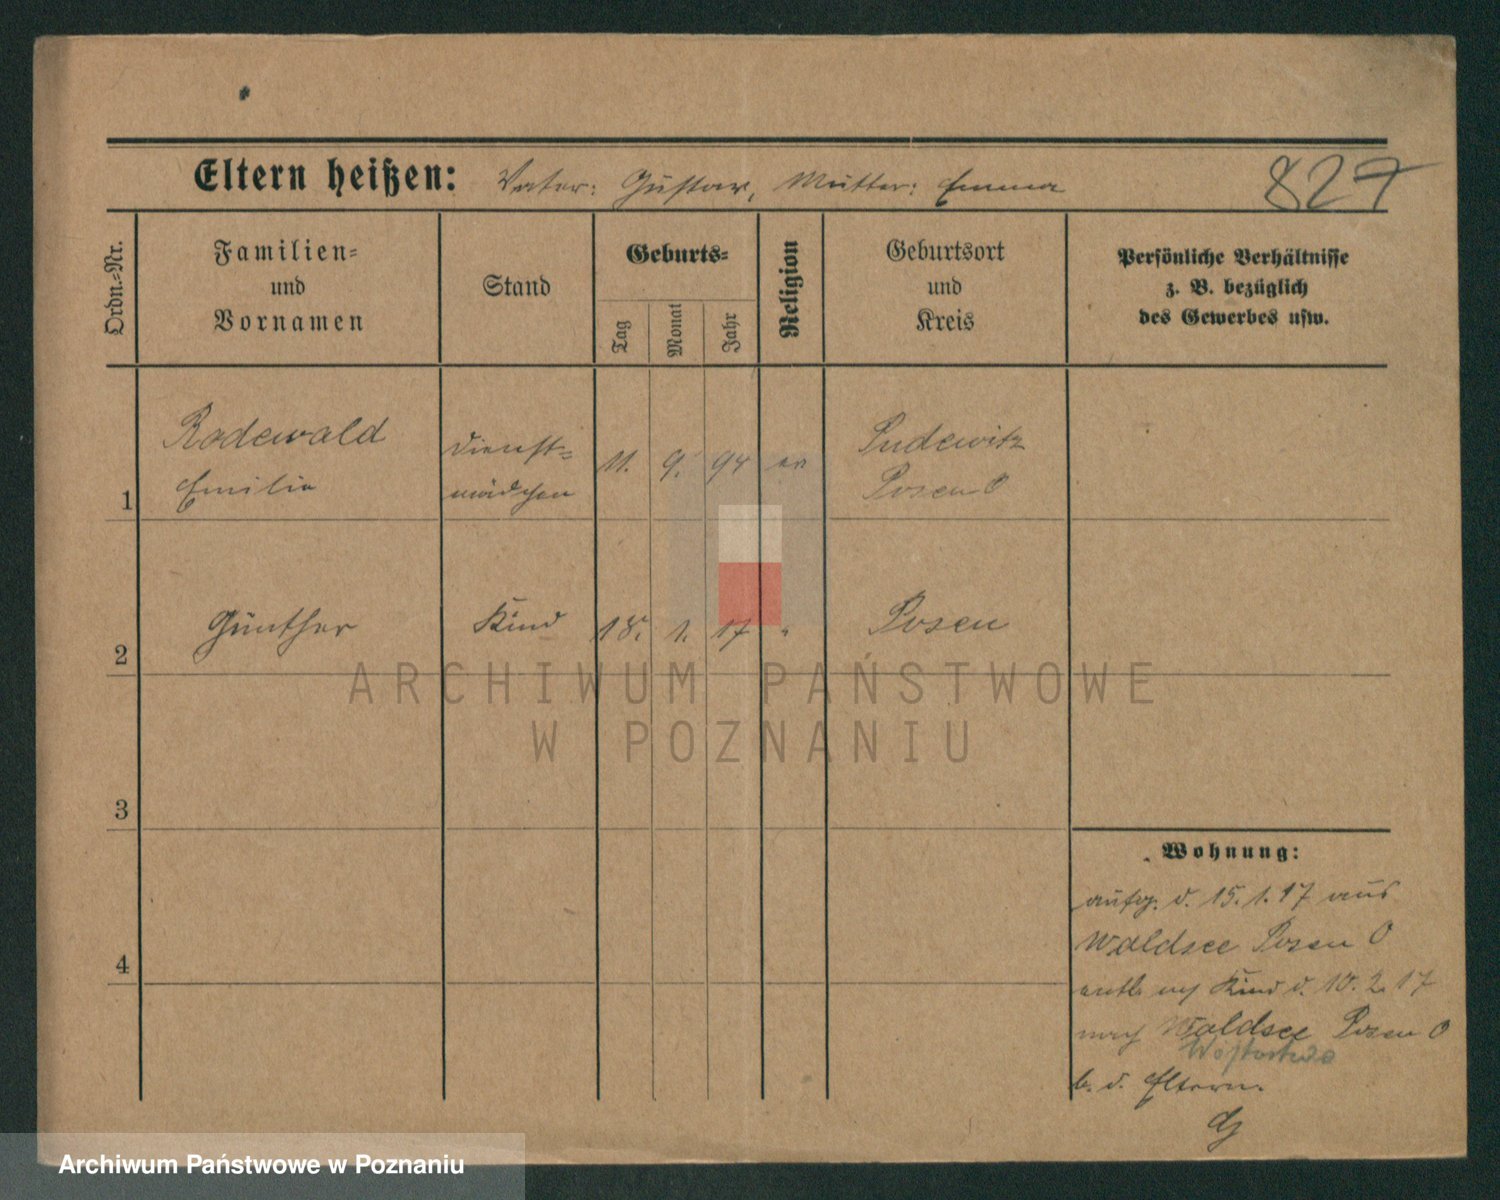 Eltern heißen: Vater: Gustav, Mutter: Emma
827
Ordn.-Nr.
Familien-
und
Vornamen
Stand
Geburts-
Tag
Monat
Jahr
Religion
Geburtsort
und
Kreis
Persönliche Verhältnisse
z. B. bezüglich
des Gewerbes usw.
1
Rodewald
Emilie
Dienst-
mädchen
11. 9. 94
ev
Pudewitz
Posen O
2
Günther
Kind
18. 1. 17
"
Posen
ARCHIWUM PAŃSTWOWE
W POZNANIU
3
4
Wohnung:
aufg. d. 15. 1. 17 aus
Waldsee Posen O
entl. Kind d. 10. 2. 17
nach Waldsee Posen O
b. d. Eltern.
Archiwum Państwowe w Poznaniu